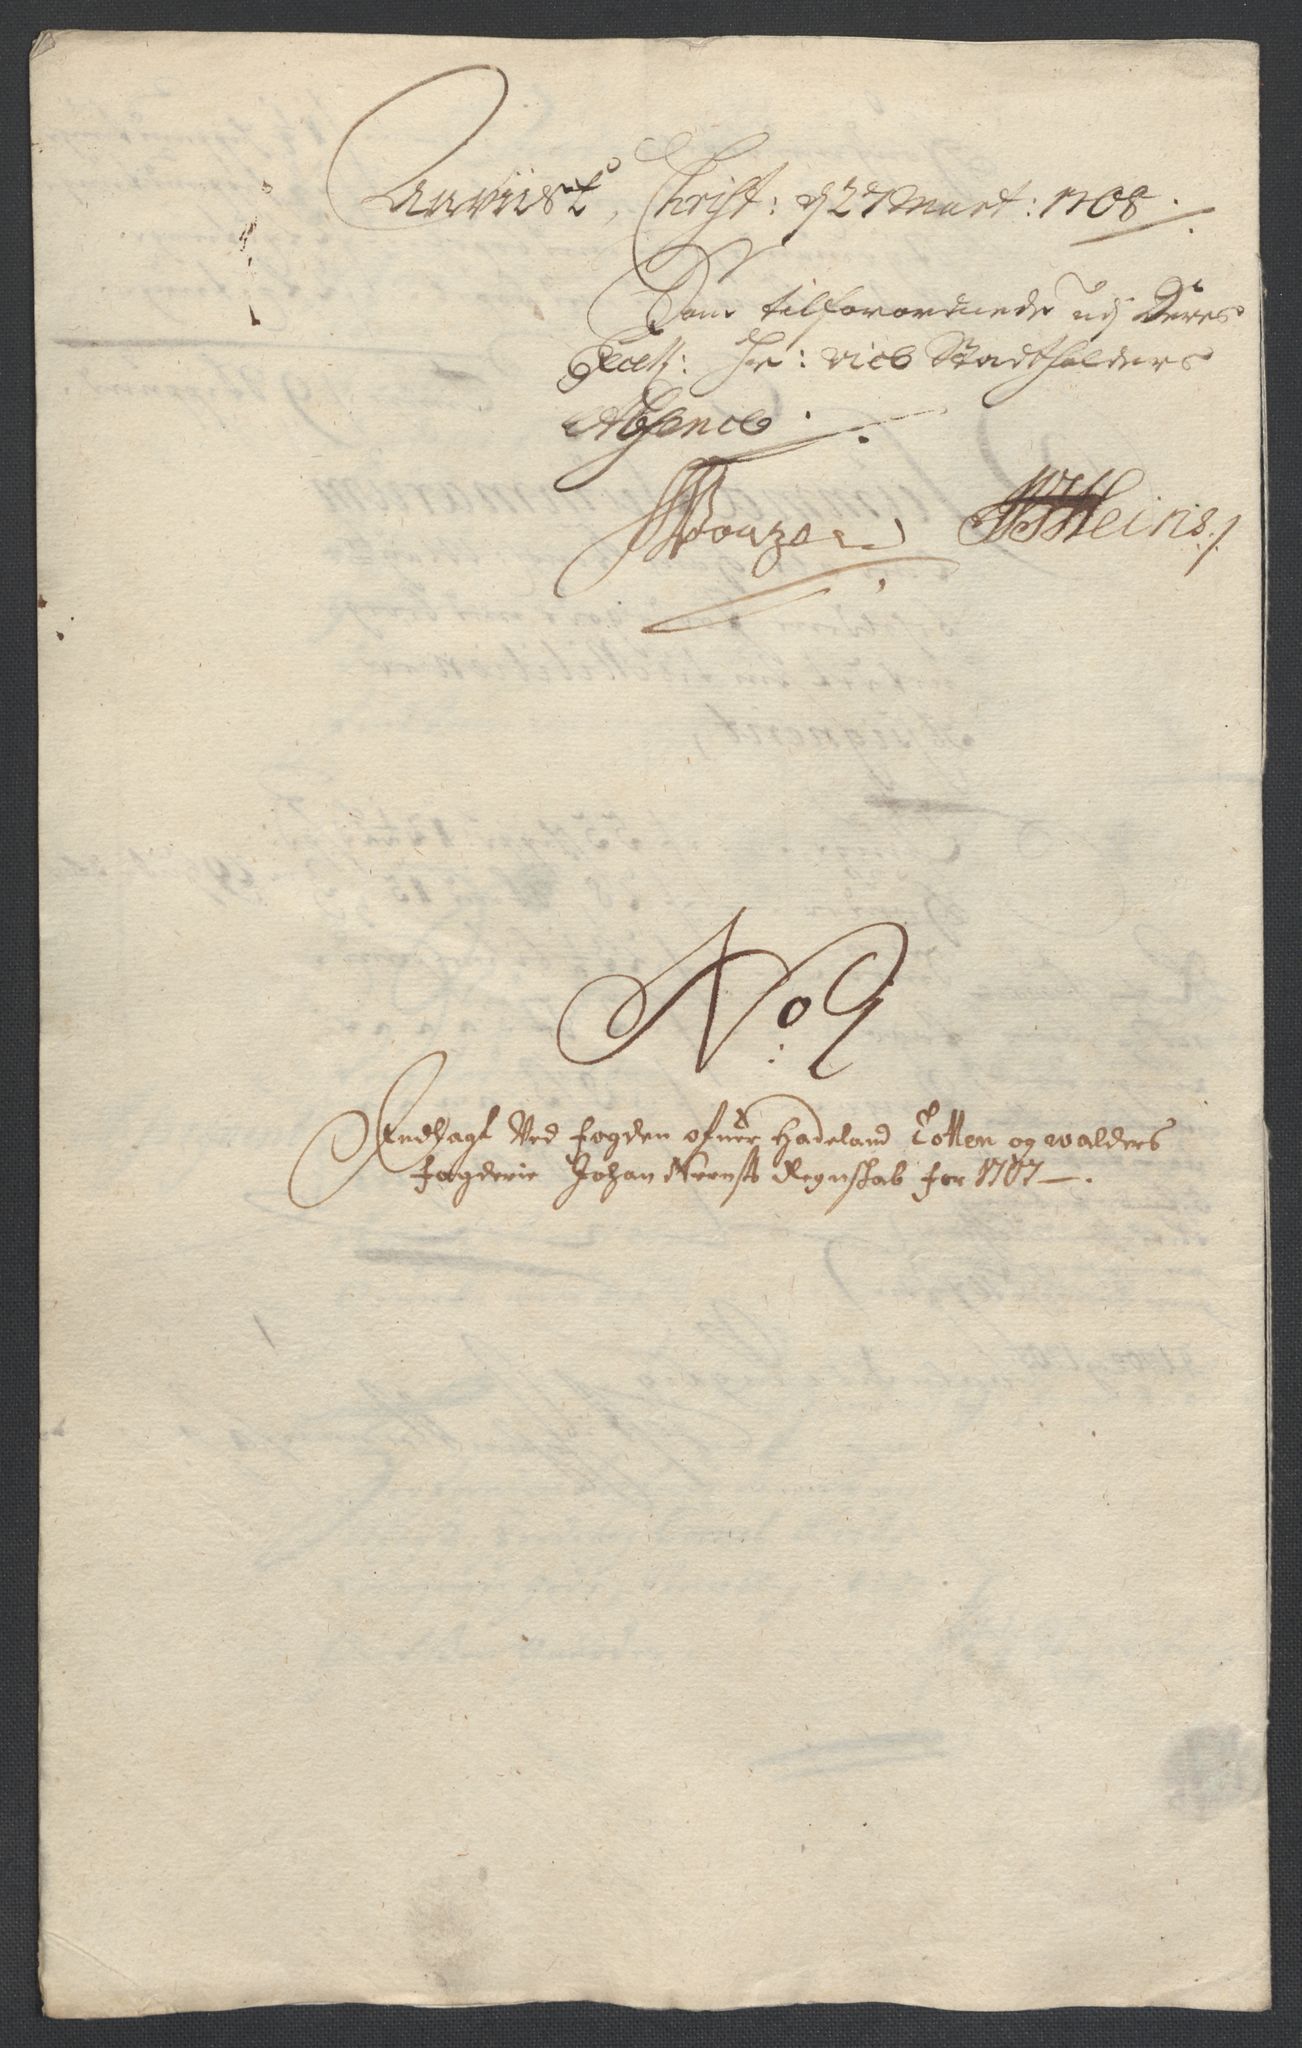 Anviist, Christ: d 27 Mart: 1708.
Som tilforordnede udj Deres
Excell: Hr: vice Stadtholders
Absence.
Heins
No: 9
Andlagt Ved fogden ofver Hadeland Totten og walders
fogderie Johan Neensts Regnskab for 1707.